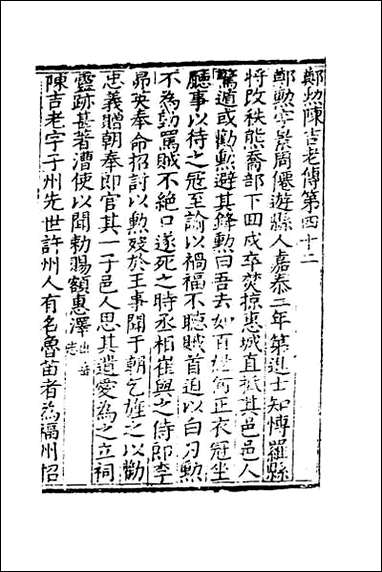 鄭勲陳吉老傳第四十二
鄭勲字景周僊遊縣人嘉泰二年第進士知愽羅縣
將改秩熊喬部下四戍卒焚掠惠城直抵其邑邑人
驚遁或勸勲避其鋒勲曰吾去如百姓何正衣冠坐
廳事以待之冠至諭以禍福不聽賊首迫以白刃勲
不為動罵賊不絕口遂死之時丞相崔與之侍郎李
昴英奉命招討以勲歿於王事聞于朝乞旌之以勸
忠義贈朝奉郎官其一子邑人思其遺愛為之立祠
靈跡甚著漕使以聞勑賜額惠澤出舊志
陳吉老字子州先世許州人有名魯苗者為福州招